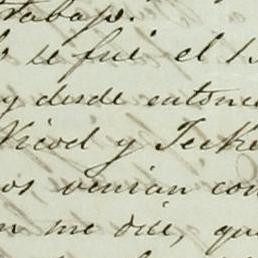 trabajo.
se fué el 1
y desde entonc
Nicol y Tecke
os venian con
n me dice, qu